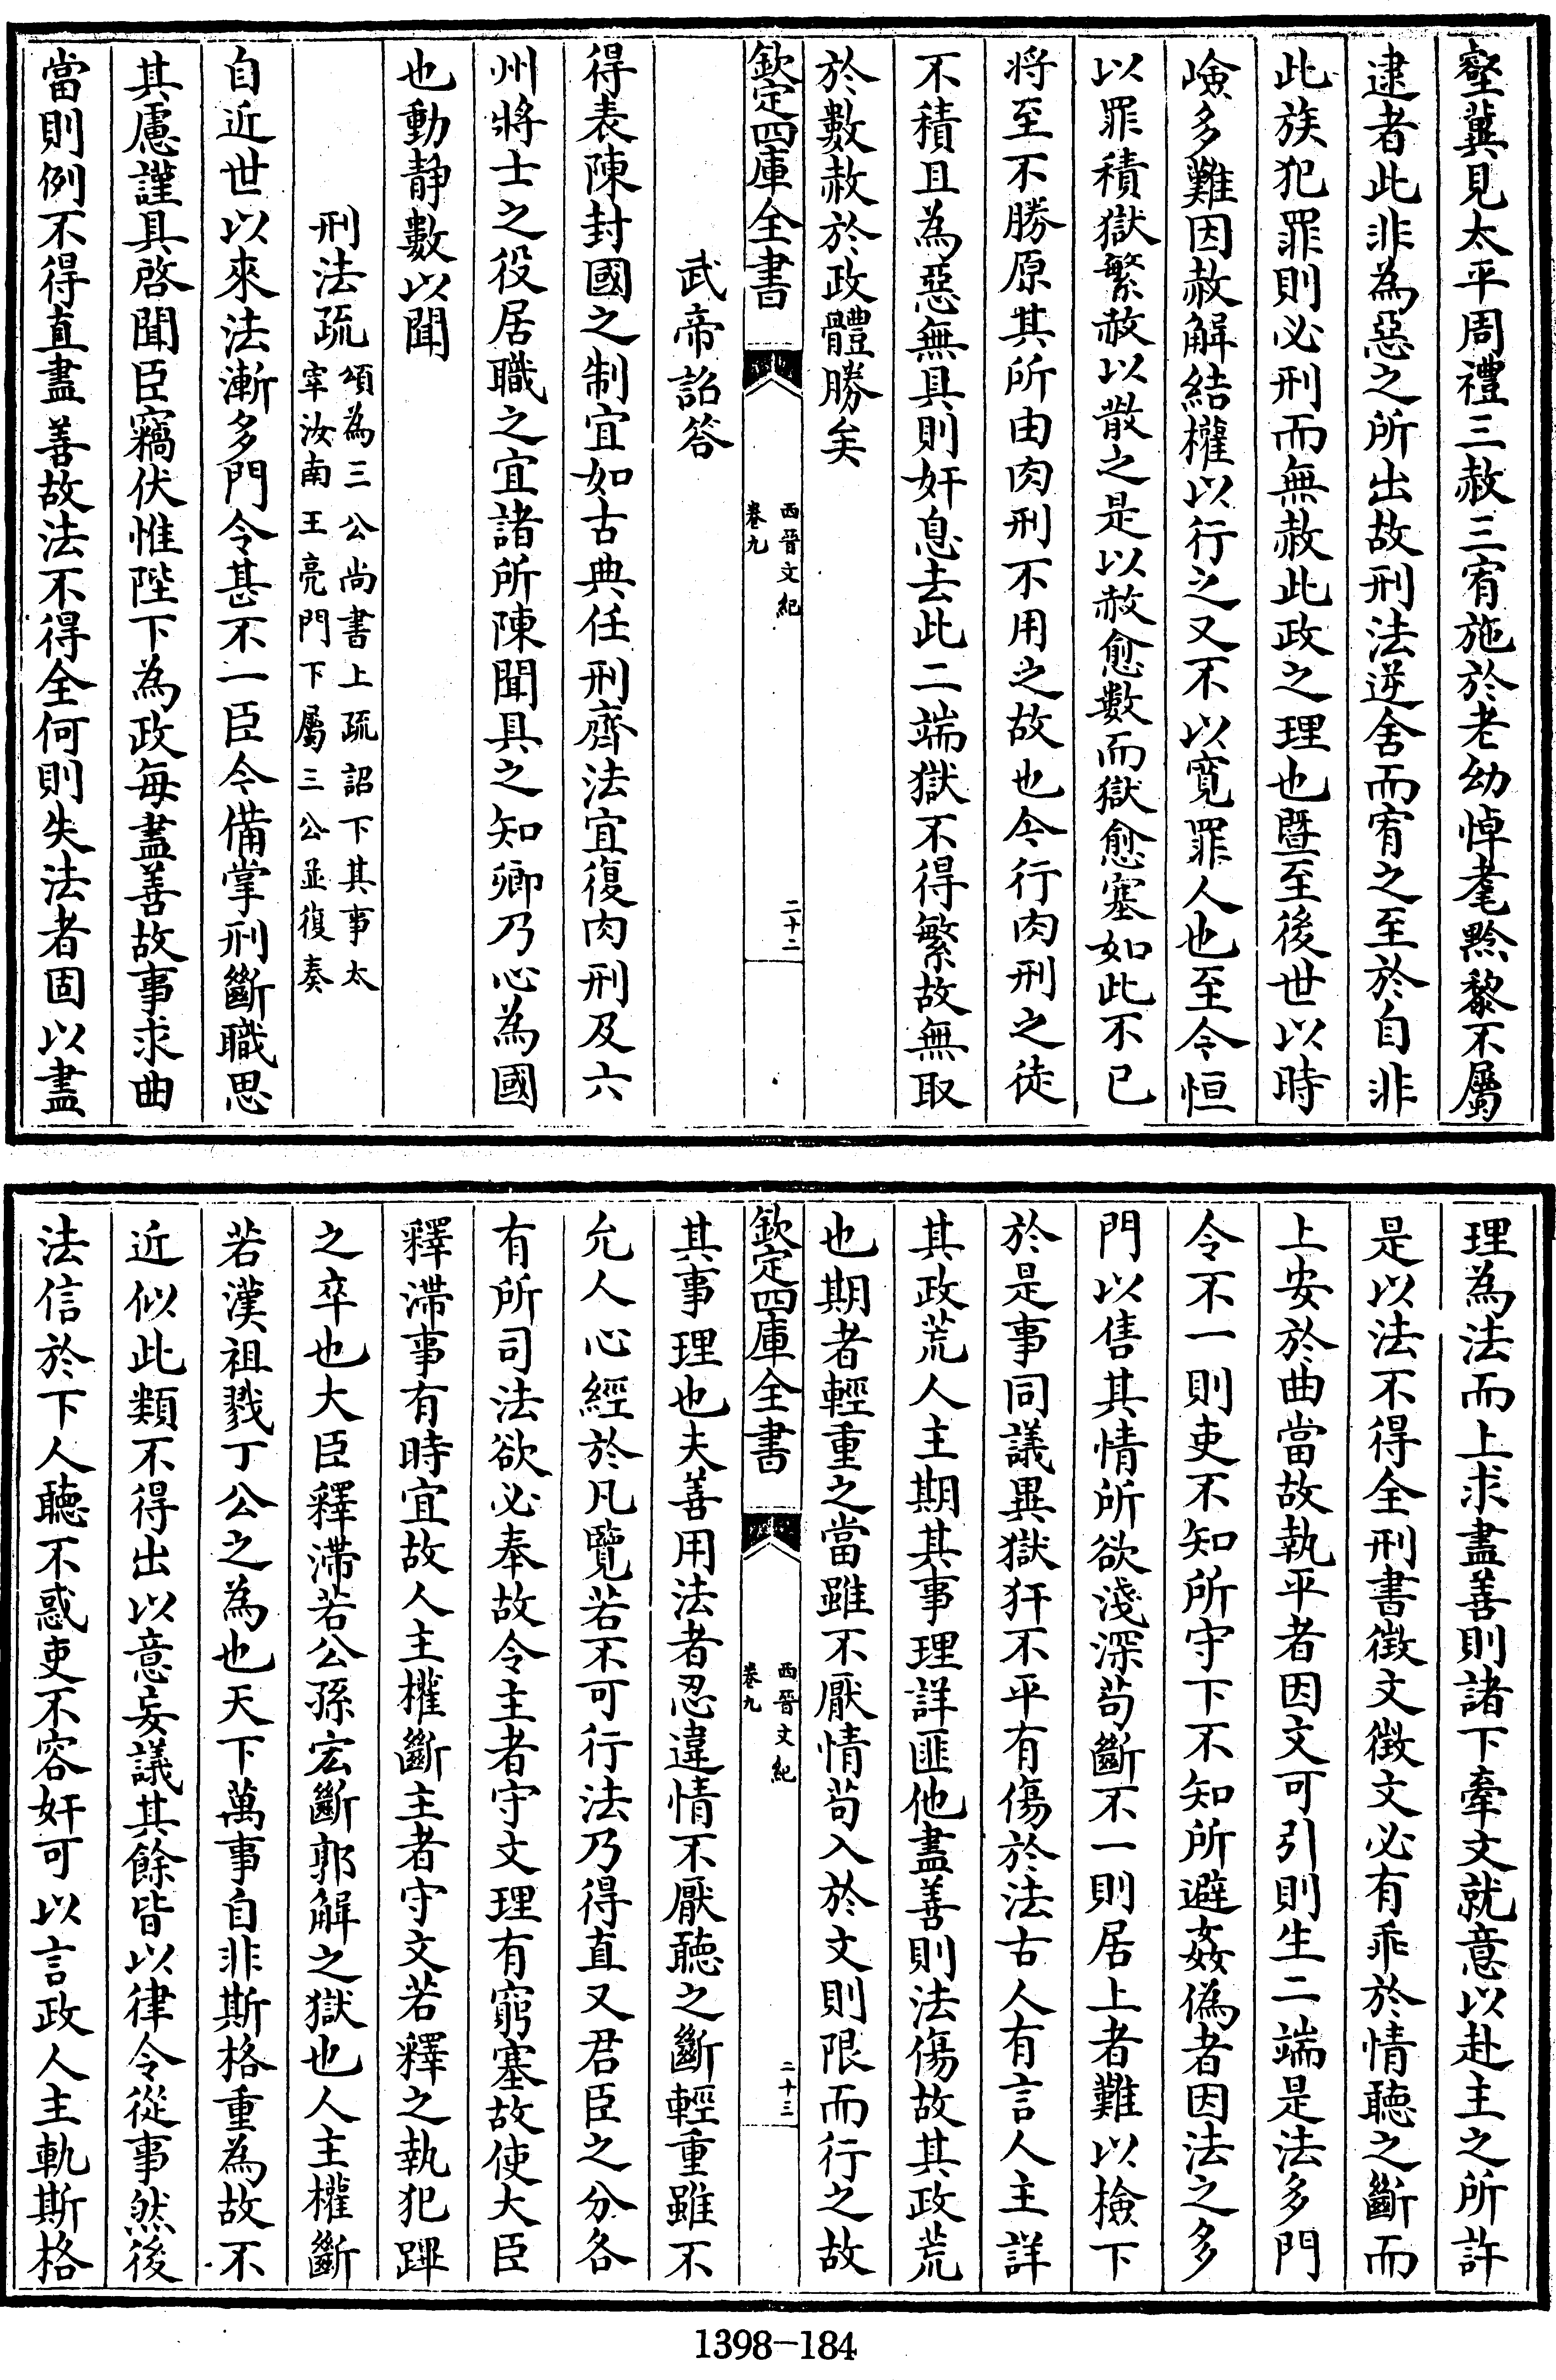 壑冀見太平周禮三赦三宥施於老幼悼耄黔黎不屬
逮者此非為惡之所出故刑法逆舍而宥之至於自非
此族犯罪則必刑而無赦此政之理也暨至後世以時
嶮多難因赦解結權以行之又不以寛罪人也至今恒
以罪積獄繁赦以散之是以赦愈數而獄愈塞如此不已
将至不勝原其所由肉刑不用之故也今行肉刑之徒
不積且為惡無具則奸息去此二端獄不得繁故無取
於數赦於政體勝矣
欽定四庫全書
西晉文紀
卷九
二十二
武帝詔答
得表陳封國之制宜如古典任刑齊法宜復肉刑及六
州將士之役居職之宜諸所陳聞具之知卿乃心為國
也動靜數以聞
刑法疏
頌為三公尚書上疏詔下其事太
宰汝南王亮門下屬三公並復奏
自近世以來法漸多門令甚不一臣今備掌刑斷職思
其慮謹具啓聞臣竊伏惟陛下為政每盡善故事求曲
當則例不得直盡善故法不得全何則失法者固以盡
理為法而上求盡善則諸下牽文就意以赴主之所許
是以法不得全刑書徴文徴文必有乖於情聽之斷而
上安於曲當故執平者因文可引則生二端是法多門
令不一則吏不知所守下不知所避姦偽者因法之多
門以售其情所欲淺深苟斷不一則居上者難以檢下
於是事同議異獄犴不平有傷於法古人有言人主詳
其政荒人主期其事理詳匪他盡善則法傷故其政荒
也期者輕重之當雖不厭情苟入於文則限而行之故
欽定四庫全書
西晉文紀
卷九
二十三
其事理也夫善用法者忍違情不厭聽之斷輕重雖不
允人心經於凡覽若不可行法乃得直又君臣之分各
有所司法欲必奉故令主者守文理有窮塞故使大臣
釋滯事有時宜故人主權斷主者守文若釋之執犯蹕
之卒也大臣釋滯若公孫宏斷郭解之獄也人主權斷
若漢祖戮丁公之為也天下萬事自非斯格重為故不
近似此類不得出以意妄議其餘皆以律令從事然後
法信於下人聽不惑吏不容奸可以言政人主軌斯格
1398-184